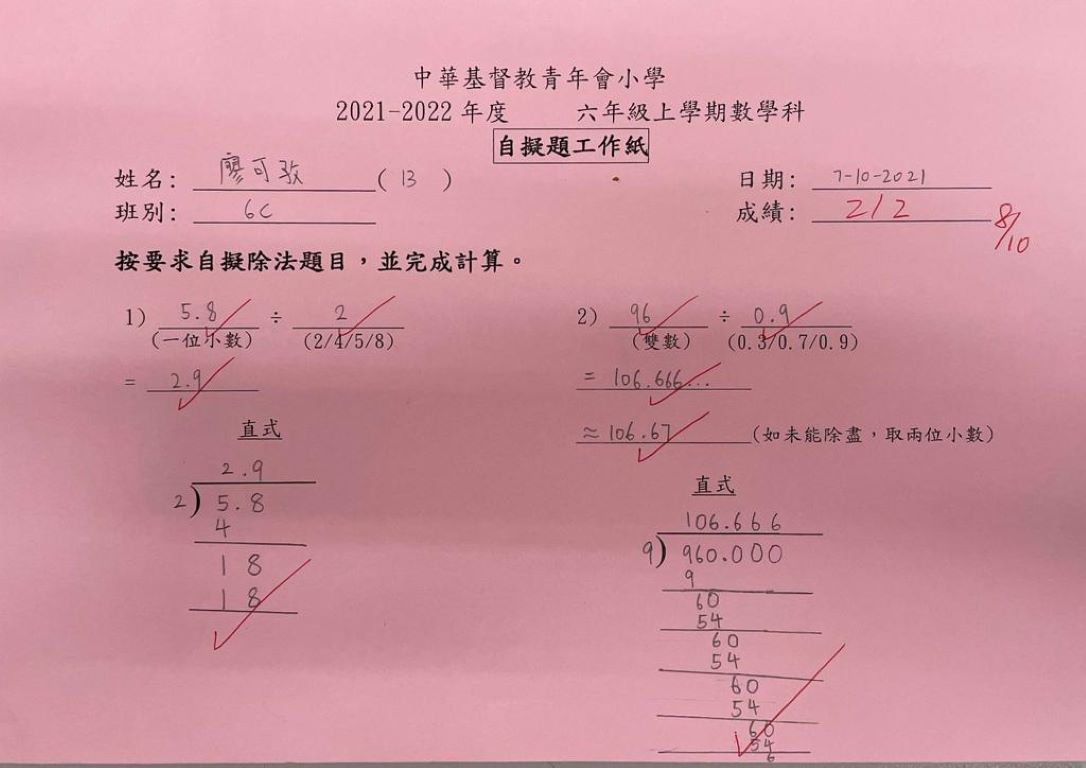 中華基督教青年會小學
2021-2022 年度 六年級上學期數學科
自擬題工作紙
姓名： 廖可孜 ( 13 ) 日期： 7-10-2021
班別： 6C 成績： 2/2 8/10
按要求自擬除法題目，並完成計算。
1) 5.8 ÷ 2
(一位小數) (2/4/5/8)
= 2.9
直式
2.9
2) 5.8
4
1 8
1 8
2) 96 ÷ 0.9
(雙數) (0.3/0.7/0.9)
= 106.666...
≈ 106.67 (如未能除盡，取兩位小數)
直式
106.666
9) 960.000
9
60
54
60
54
60
54
60
54
6